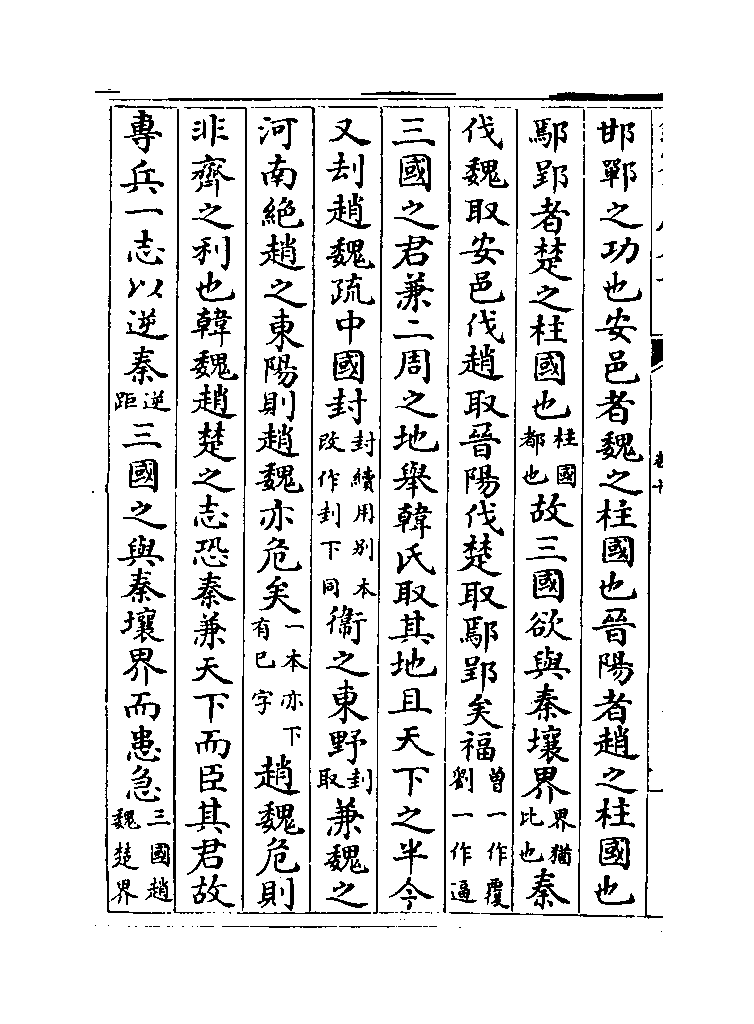 邯鄲之功也安邑者魏之柱國也晉陽者趙之柱國也
鄢郢者楚之柱國也柱國都也故三國欲與秦壤界界猶比也秦
伐魏取安邑伐趙取晉陽伐楚取鄢郢矣福曾一作覆劉一作逼
三國之君兼二周之地舉韓氏取其地且天下之半今
又刦趙魏疏中國封封續用别本改作刲下同衞之東野刲取兼魏之
河南絶趙之東陽則趙魏亦危矣一本亦下有巳字趙魏危則
非齊之利也韓魏趙楚之志恐秦兼天下而臣其君故
專兵一志以逆秦逆距三國之與秦壤界而患急三國趙魏楚界